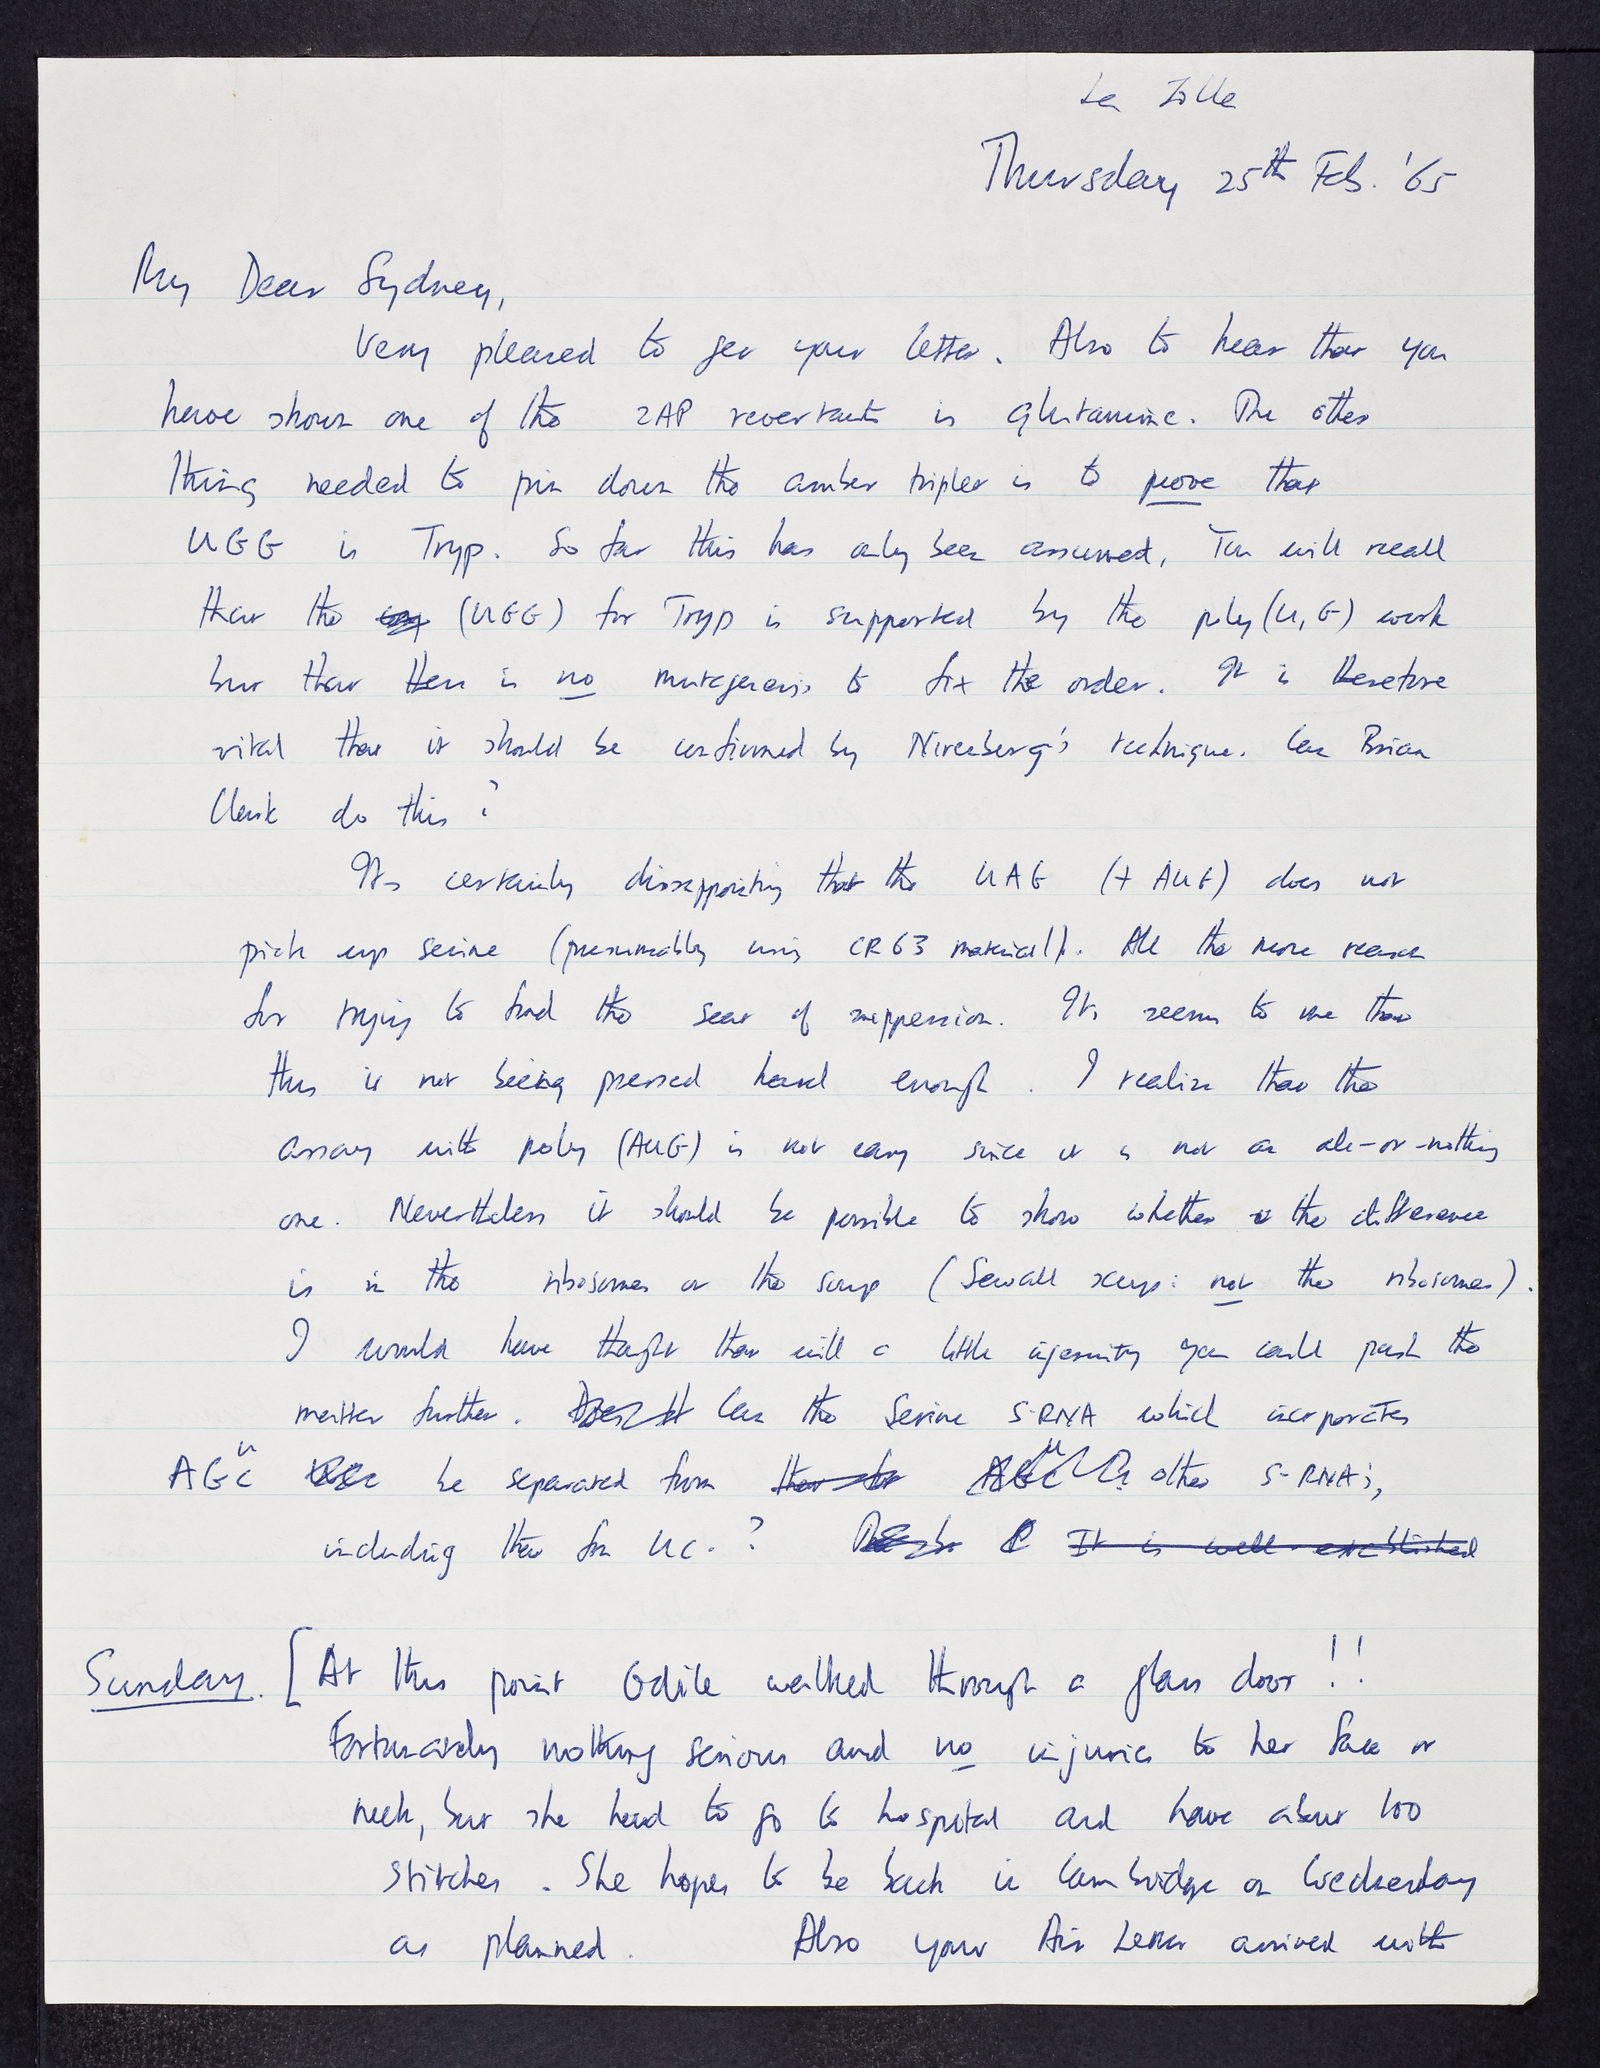 La Jolla
Thursday 25th Feb. '65
My Dear Sydney,
Very pleased to get your letter. Also to hear that you
have shown one of the 2AP revertants is glutamine. The other
thing needed to pin down the amber triplet is to prove that
UGG is Tryp. So far this has only been assumed. You will recall
that the (UGG) for Tryp is supported by the poly(U,G) work
but that there is no mutagenesis to fix the order. It is therefore
vital that it should be confirmed by Nirenberg's technique. Can Brian
Clark do this?
It's certainly dissappointing that the UAG (+ AUG) does not
pick up serine (presumably using CR63 material). All the more reason
for trying to find the seat of suppression. It seems to me that
this is not being pressed hard enough. I realize that the
assay with poly (AUG) is not easy since it is not an all-or-nothing
one. Nevertheless it should be possible to show whether the difference
is in the ribosomes or the soup (Sewall says: not the ribosomes).
I would have thought that with a little ingenuity you could push the
matter further. Does it Can the Serine S-RNA which incorporates
AGUC be separated from that for AGUC other S-RNA's,
including that for UC-? It is well-established
Sunday. [At this point Odile walked through a glass door!!
Fortunately nothing serious and no injuries to her face or
neck, but she had to go to hospital and have about 100
stitches. She hopes to be back in Cambridge on Wednesday
as planned. Also your Air Letter arrived with